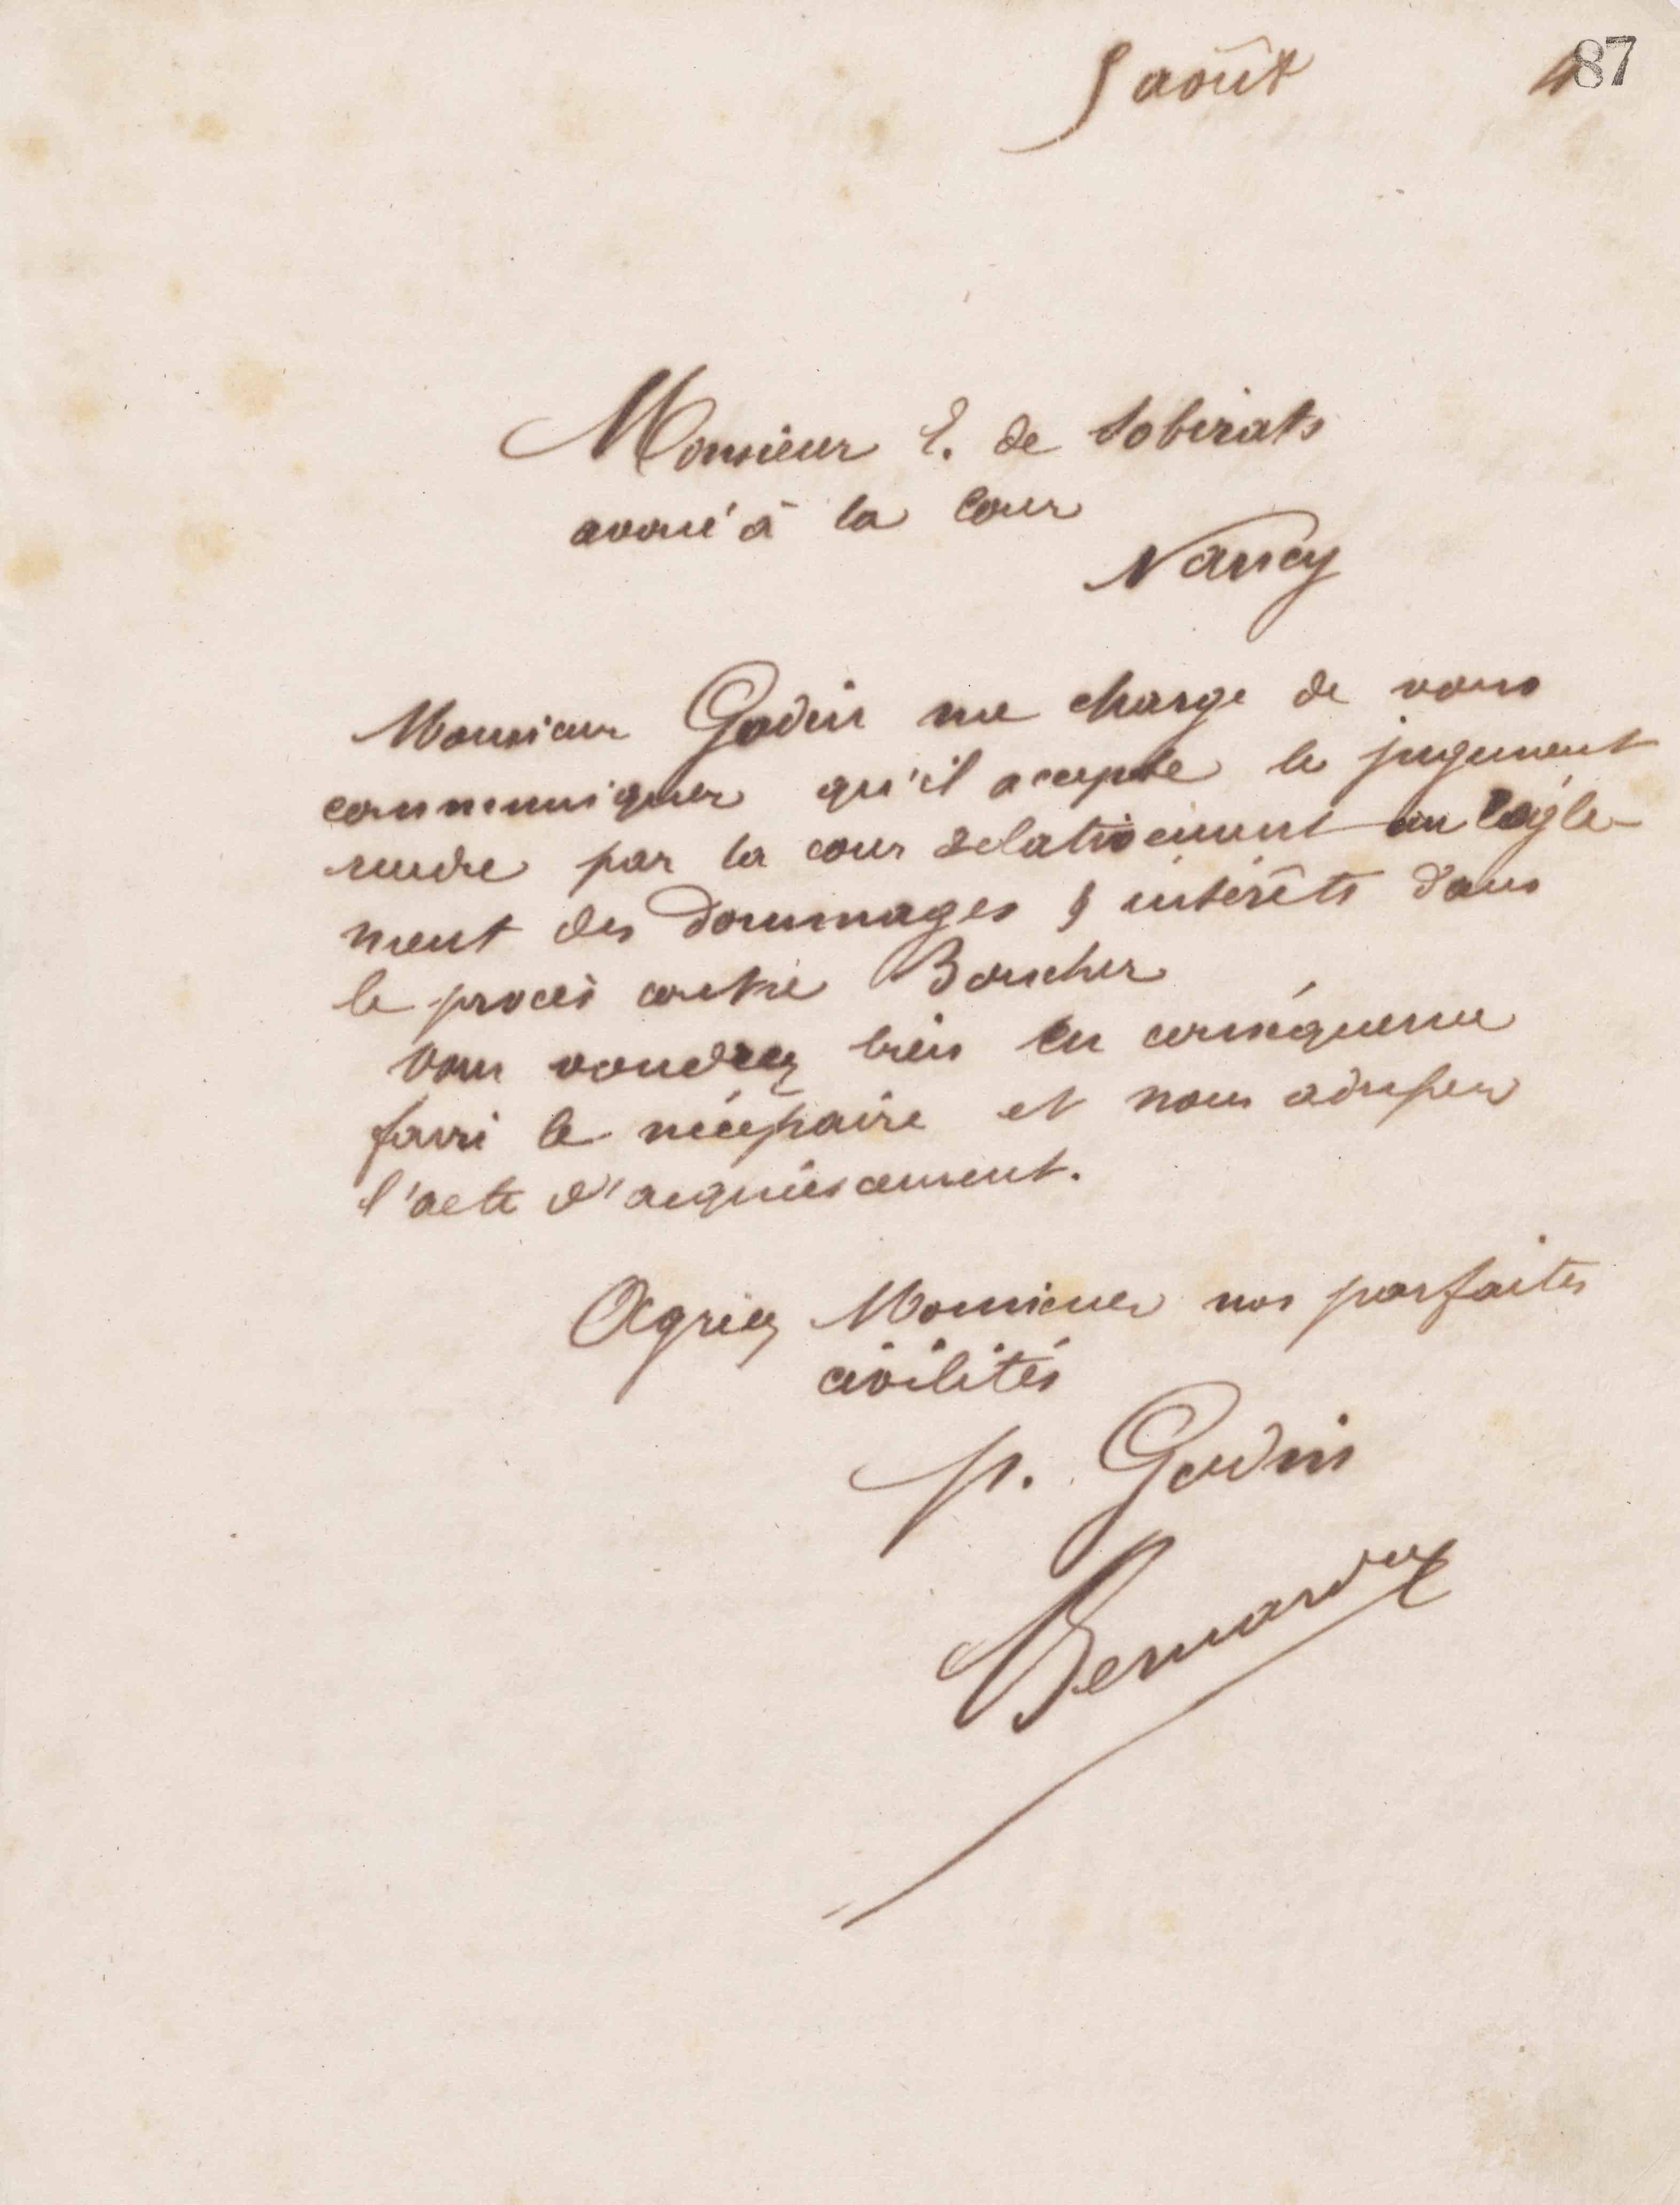 5 août 4
87
Monsieur E. de Sobirats
avoué à la Cour
Nancy
Monsieur Godin me charge de vous
communiquer qu'il accepte le jugement
rendu par la cour relativement au règle-
ment des dommages & intérêts dans
le procès contre Boucher
Vous voudrez bien en conséquence
faire le nécessaire et nous adresser
l'acte d'acquiescement.
Agréez Monsieur nos parfaites
civilités
p. Godin
Bernardot